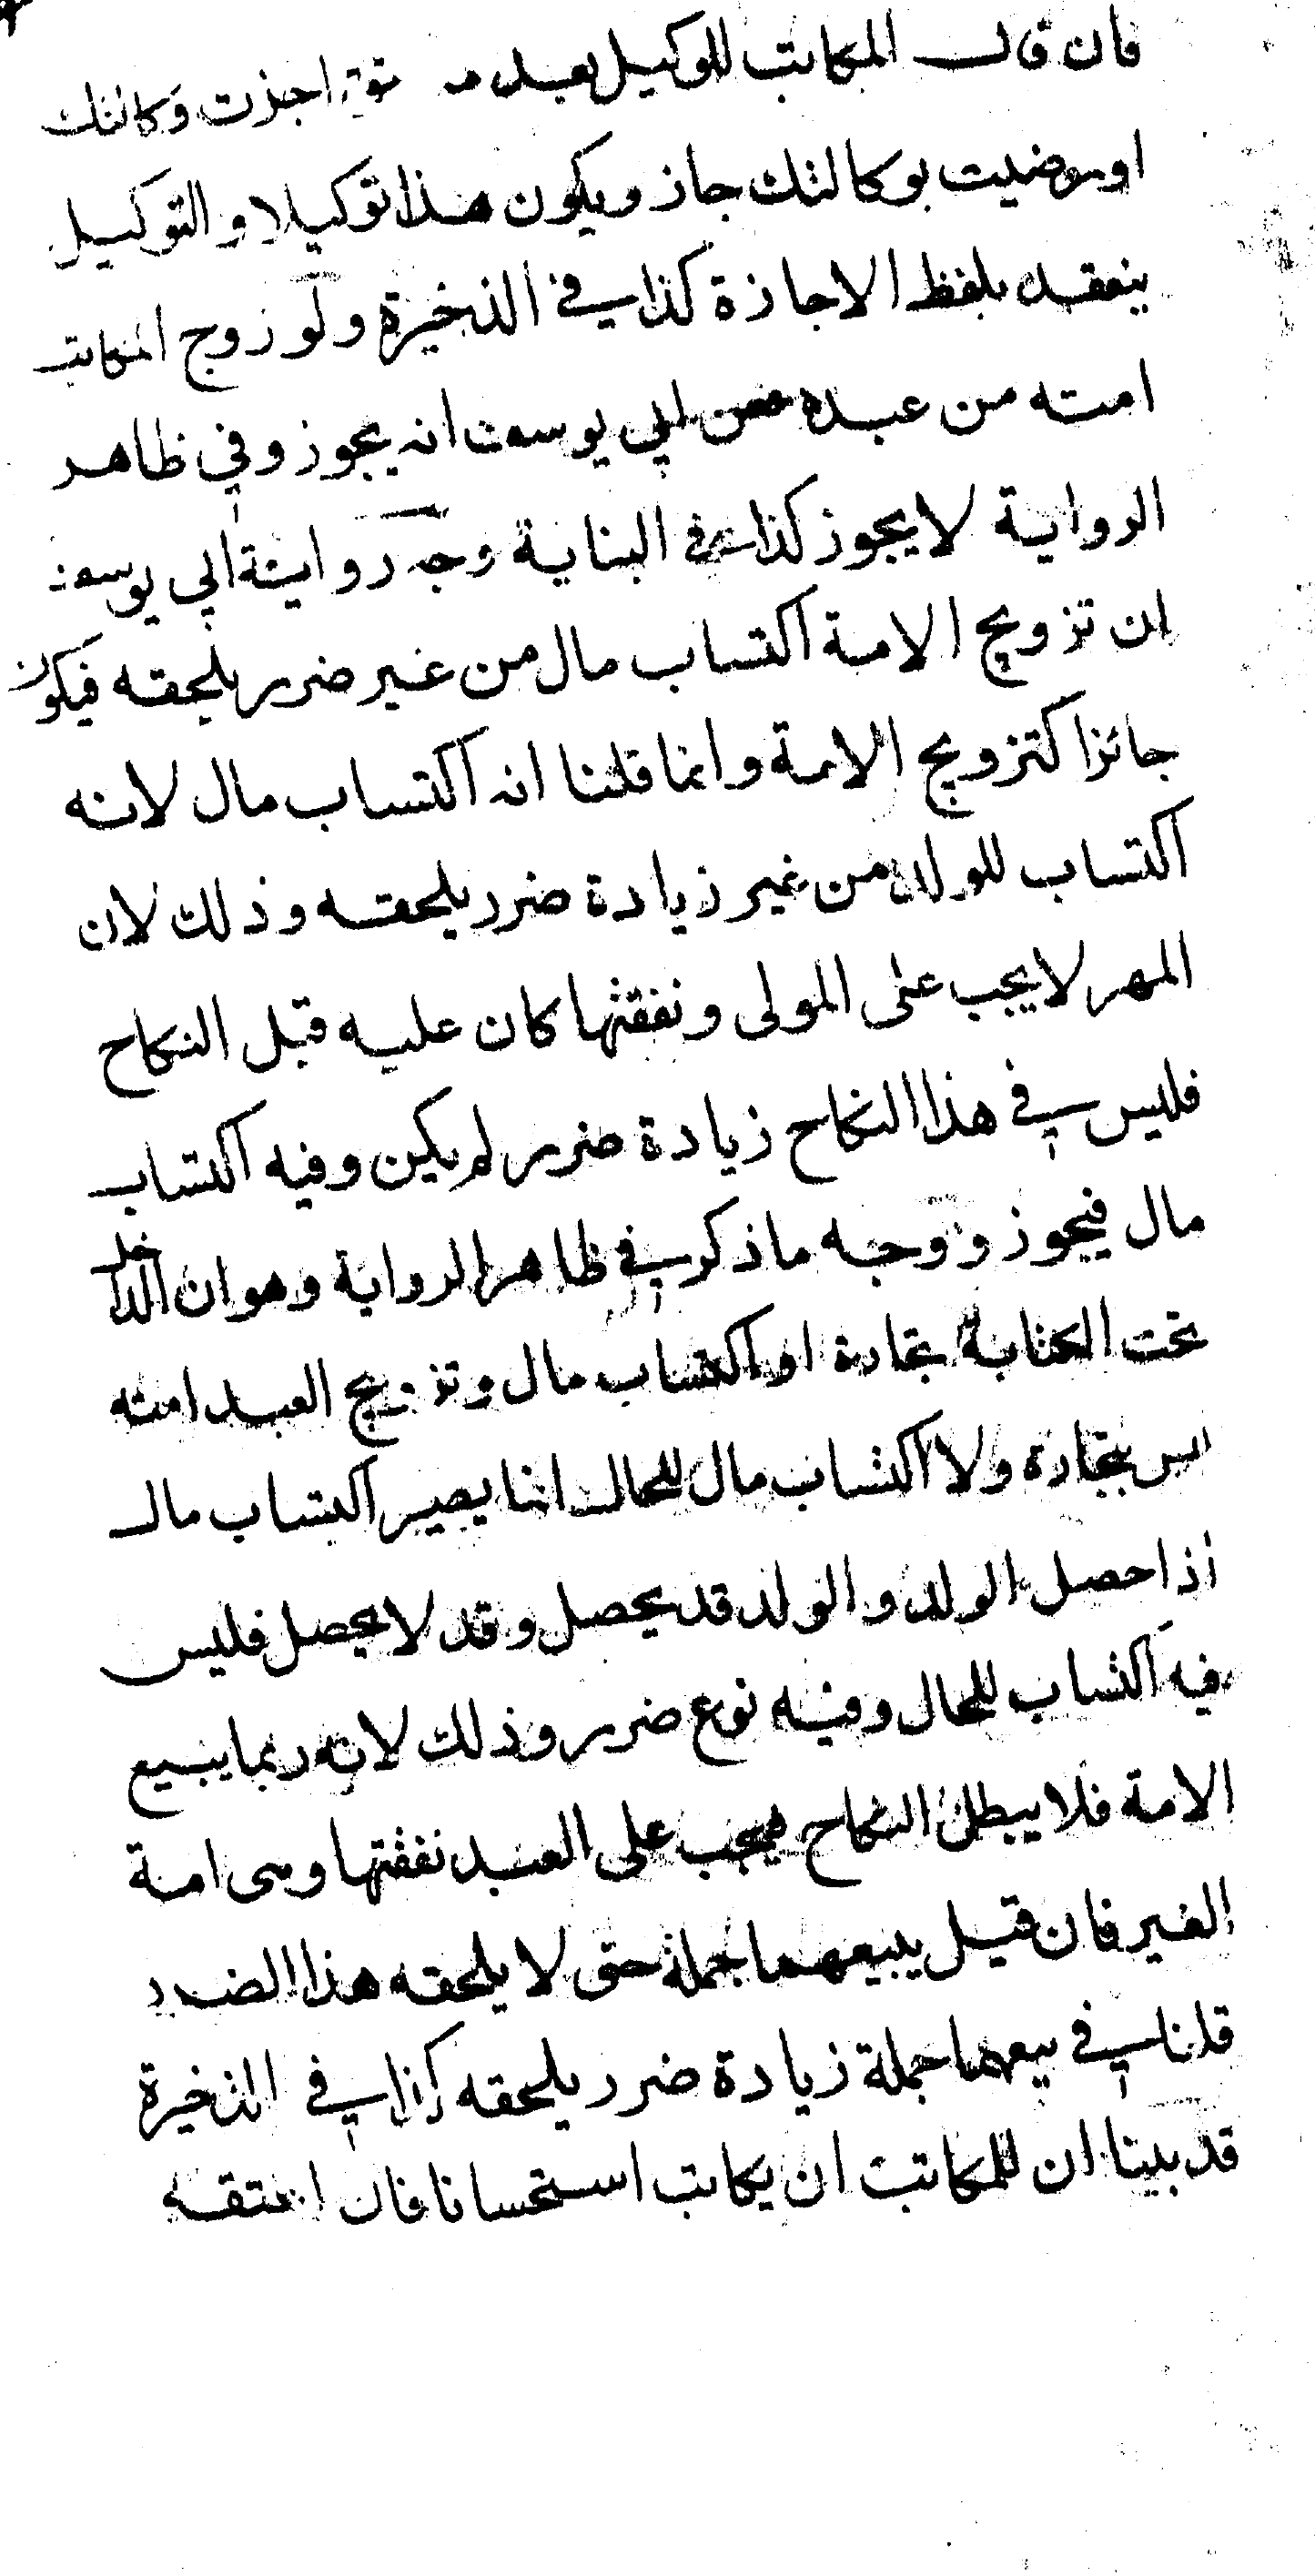 فان قال المكاتب للوكيل بعد ما عتق اجزت وكالتك
او رضيت بوكالتك جاز ويكون هذا توكيلا والتوكيل
ينعقد بلفظ الاجازة كذا في الذخيرة ولو زوج المكاتب
امته من عبده فعن ابي يوسف انه يجوز وفي ظاهر
الرواية لا يجوز كذا في البناية وجه رواية ابي يوسف
ان تزويج الامة اكتساب مال من غير ضرر يلحقه فيكون
جائزا كتزويج الامة وانما قلنا انه اكتساب مال لانه
اكتساب للولد من غير زيادة ضرر يلحقه وذلك لان
المهر لا يجب على المولى ونفقتها كان عليه قبل النكاح
فليس في هذا النكاح زيادة ضرر لم يكن وفيه اكتساب
مال فيجوز ووجه ما ذكر في ظاهر الرواية وهو ان الداخل
تحت الكتابة تجارة او اكتساب مال وتزويج العبد امته
ليس بتجارة ولا اكتساب مال للحال انما يصير اكتساب مال
اذا حصل الولد والولد قد يحصل وقد لا يحصل فليس
فيه اكتساب للحال وفيه نوع ضرر وذلك لانه ربما يبيع
الامة فلا يبطل النكاح فيجب على العبد نفقتها وهى امة
الغير فان قيل يبيعهما جملة حتى لا يلحقه هذا الضرر
قلنا في بيعهما جملة زيادة ضرر يلحقه كذا في الذخيرة
قد بينا ان للمكاتب ان يكاتب استحسانا فان اعتقه